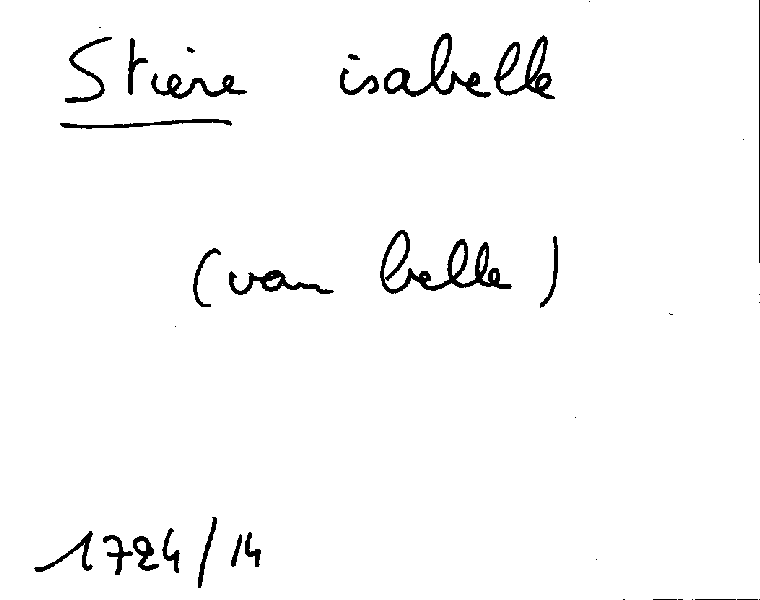 Stière isabelle
(van belle)
1724/14